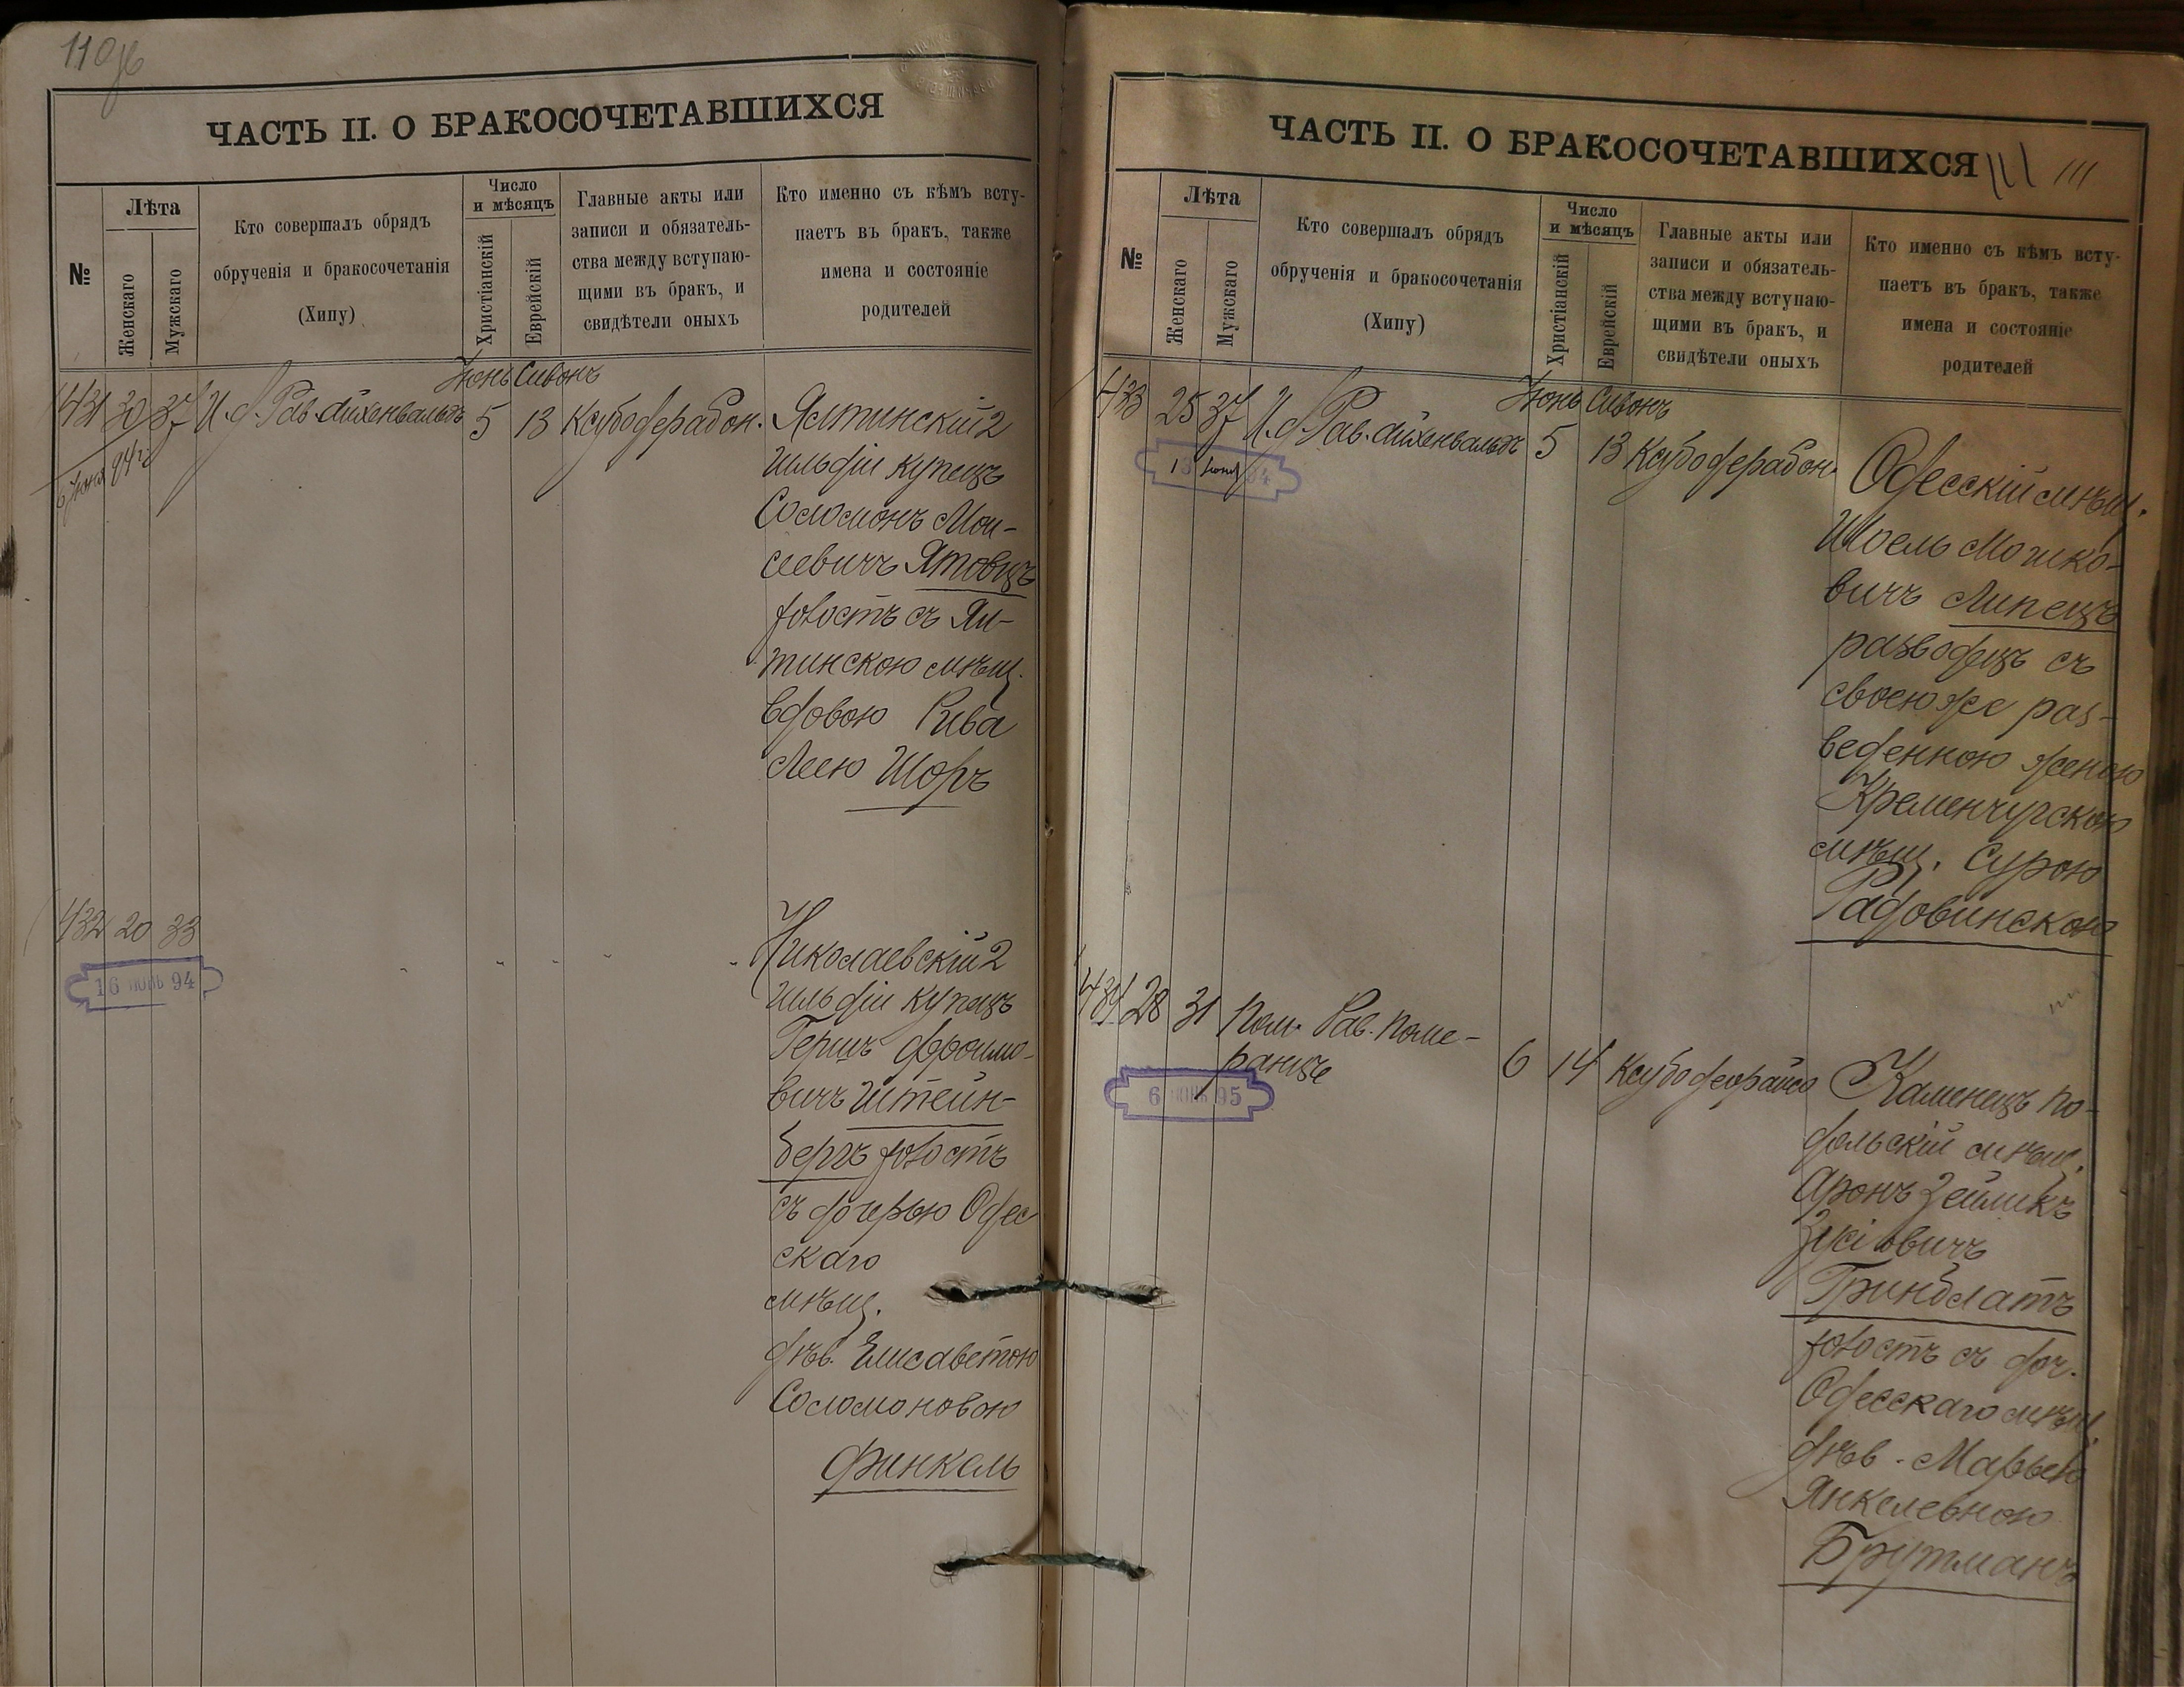 110об
ЧАСТЬ II. О БРАКОСОЧЕТАВШИХСЯ
№
Лѣта
Женскаго
Мужскаго
Кто совершалъ обрядъ
обрученія и бракосочетанія
(Хипу)
Число
и мѣсяцъ
Христіанскій
Еврейскій
Главные акты или
записи и обязатель-
ства между вступаю-
щими въ бракъ, и
свидѣтели оныхъ
Кто именно съ кѣмъ всту-
паетъ въ бракъ, также
имена и состояніе
родителей
Іюнь Сивонъ
431 30 37 И. д. Рав. Айхенвальдъ 5 13 Ксубо дерабон. Ялтинскій 2
6 Іюня 94 г
гильдіи купецъ
Соломонъ Мои-
сеевичъ Ятовцъ
холостъ съ Ял-
тинскою мѣщ.
вдовою Рива
Леею Шоръ
432 20 33 Николаевскій 2
16 ІЮНЬ 94
гильдіи купецъ
Гершъ Фроимо-
вичъ Штейн-
бергъ холостъ
съ дочерью Одес-
скаго
мѣщ.
дѣв. Елисаветою
Соломоновою
Финкель
ЧАСТЬ II. О БРАКОСОЧЕТАВШИХСЯ
111 111
№
Лѣта
Женскаго
Мужскаго
Кто совершалъ обрядъ
обрученія и бракосочетанія
(Хипу)
Число
и мѣсяцъ
Христіанскій
Еврейскій
Главные акты или
записи и обязатель-
ства между вступаю-
щими въ бракъ, и
свидѣтели оныхъ
Кто именно съ кѣмъ всту-
паетъ въ бракъ, также
имена и состояніе
родителей
Іюнь Сивонъ
433 25 37 И. д. Рав. Айхенвальдъ 5 13 Ксубо дерабон. Одесскій мѣщ.
Шоель Мошко-
вичъ Липецъ
разводецъ съ
своею же раз-
веденною женою
Кременчугскою
мѣщ. Сурою
Радовинскою
434 28 31 Пом. Рав. Поме-
ранце 6 14 Ксубо деорайсо Каменецъ По-
6 ІЮНЬ 95
дольскій мѣщ.
Аронъ Зейликъ
Зусіовичъ
Гринблатъ
холостъ съ доч.
Одесскаго мѣщ.
дѣв. Марьею
Янкелевною
Брутманъ